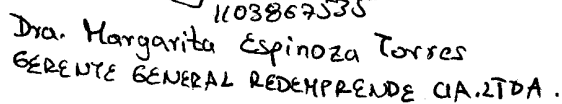 1103867535
Dra. Margarita Espinoza Torres
GERENTE GENERAL REDEMPRENDE CIA.LTDA.